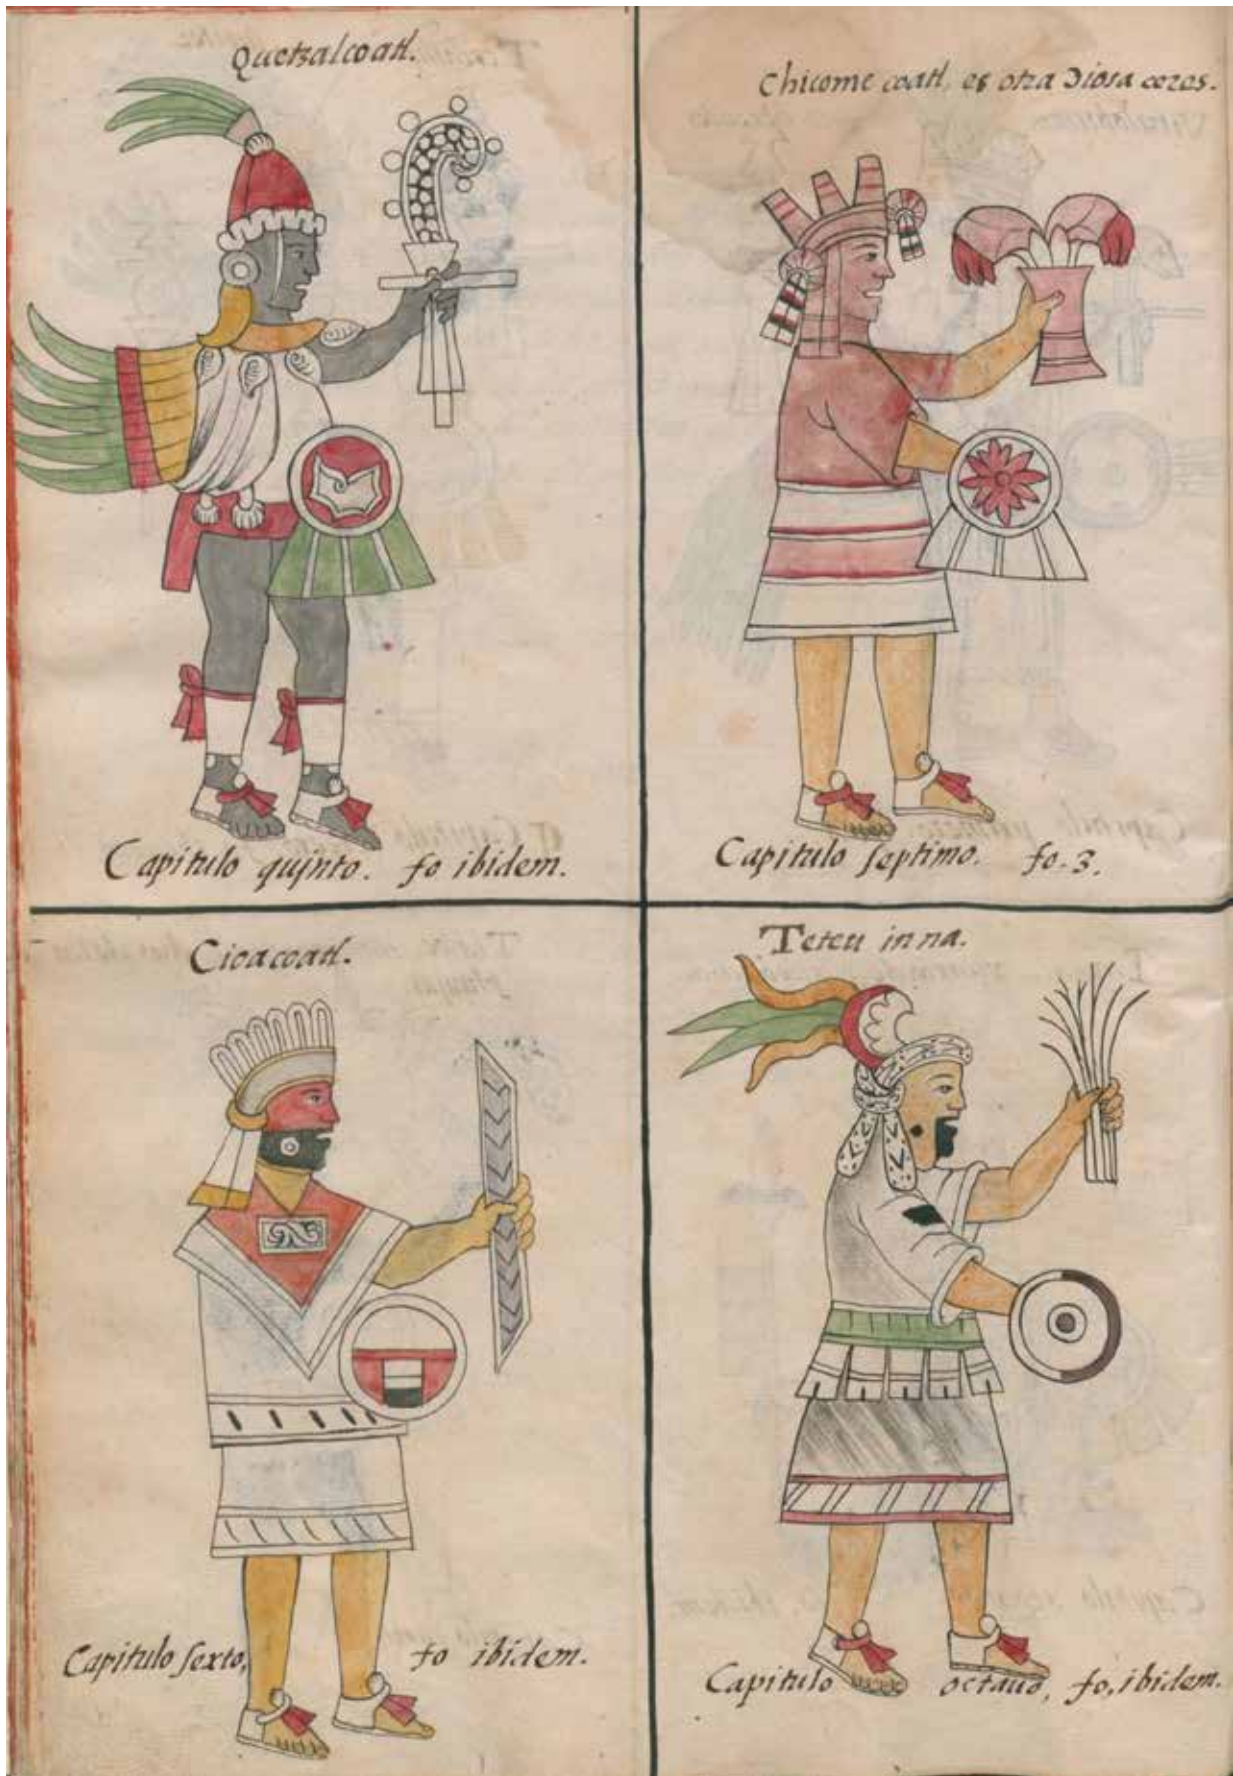 Quetzalcoatl.
Capitulo qujnto. fo ibidem.
Chicome coatl, es otra Diosa ceres.
Capitulo septimo. fo. 3.
Cioacoatl.
Capitulo sexto, fo ibidem.
Teteu inna.
Capitulo octauo, fo, ibidem.